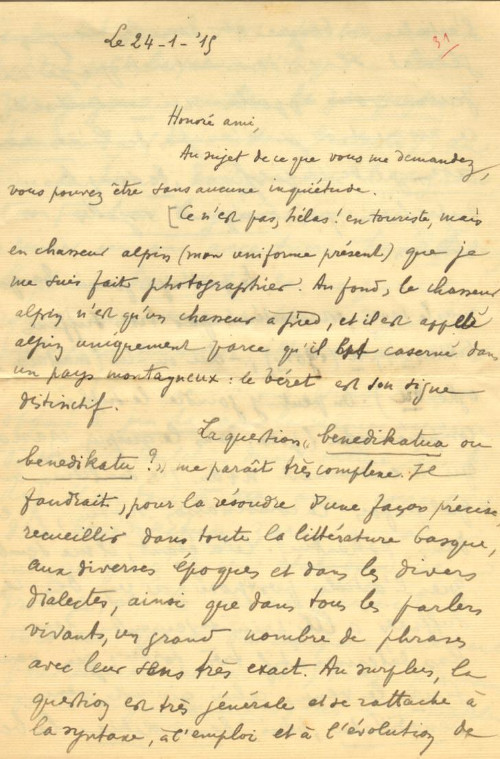 Le 24-1-'15
31
Honoré ami,
Au sujet de ce que vous me demandez,
vous pouvez être sans aucune inquiétude.
[Ce n'est pas, hélas! en touriste, mais
en chasseur alpin (mon uniforme présent) que je
me suis fait photographier. Au fond, le chasseur
alpin n'est qu'un chasseur à pied, et il est appelé
alpin uniquement parce qu'il est caserné dans
un pays montagneux : le béret est son signe
distinctif.
La question, « benedikatua ou
benedikatu ? » me paraît très complexe. Il
faudrait, pour la résoudre d'une façon précise,
recueillir dans toute la littérature basque,
aux diverses époques et dans les divers
dialectes, ainsi que dans tous les parlers
vivants, un grand nombre de phrases
avec leur sens très exact. Au surplus, la
question est très générale et se rattache à
la syntaxe, à l'emploi et à l'évolution de